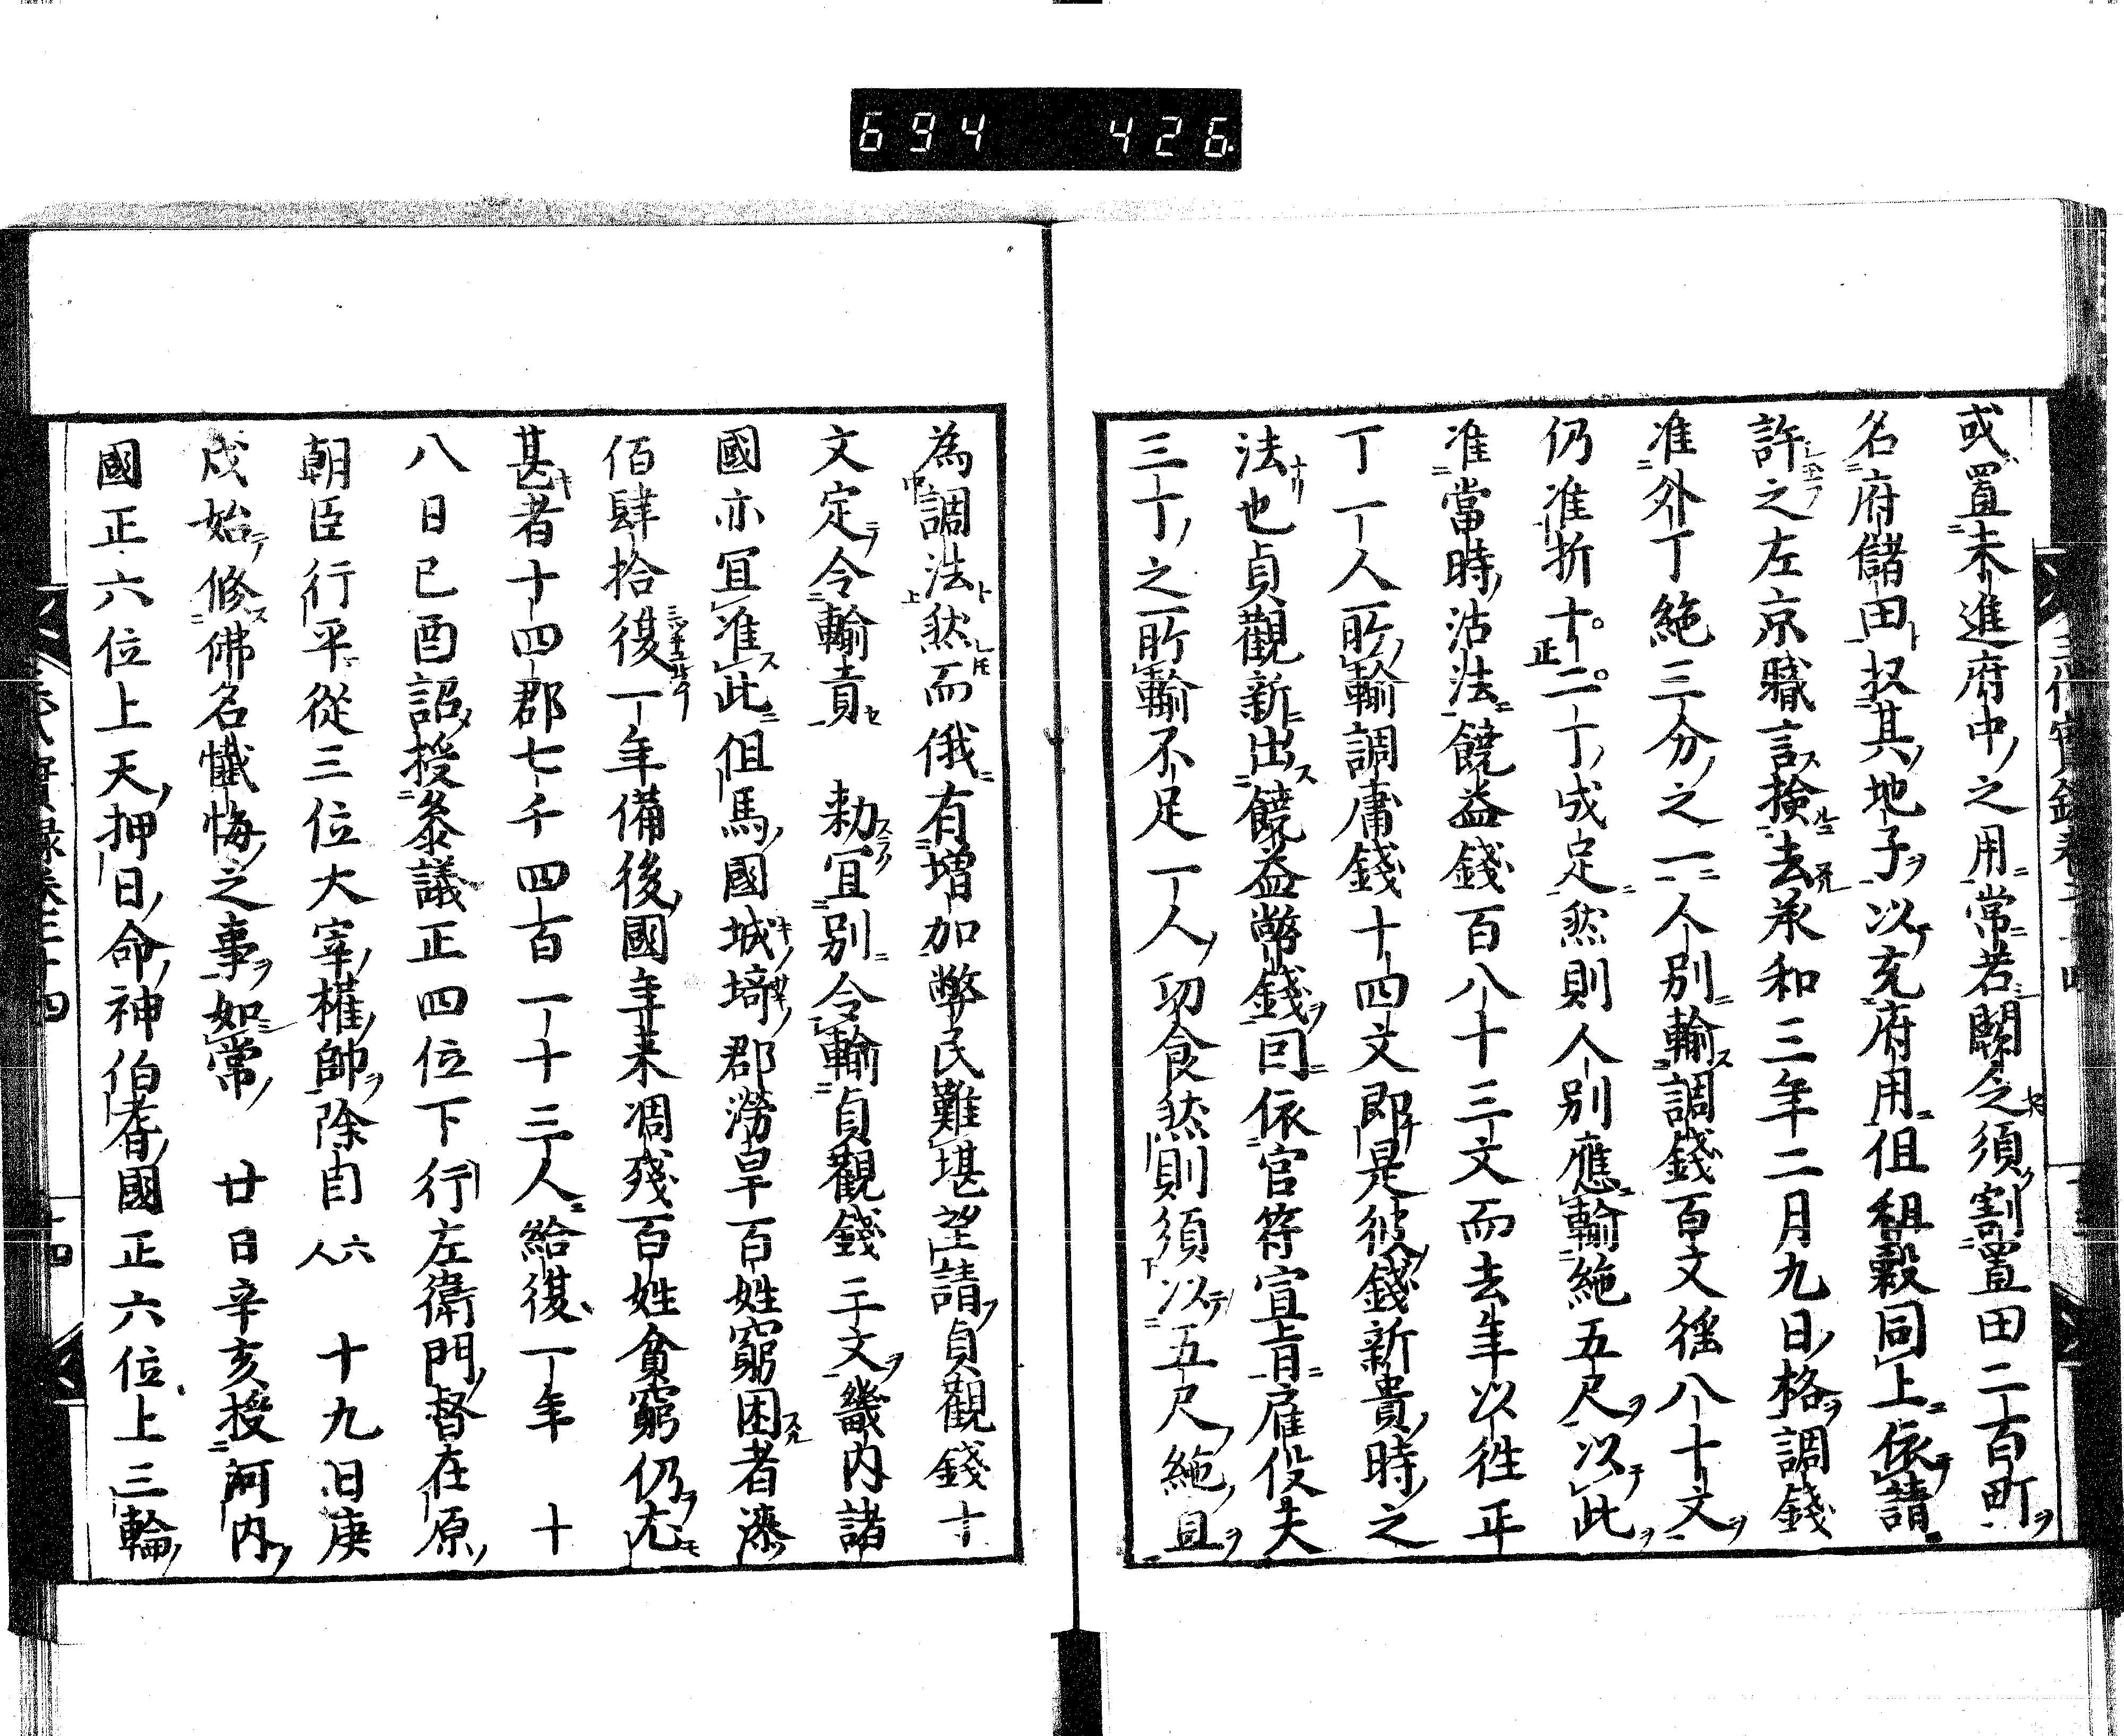 694 426
或置未進府中之用常若闕之須割置田二百町
名府儲田扠其地子以充府用但租穀同上依請
許之左京職言撿去承和三年二月九日格調錢
准外丁絁三分之一人別輸調錢百文徭八十文
仍准折十二丁成足然則人別應輸絁五尺以此
正
准當時沽法饒益錢百八十三文而去年以徃平
丁一人所輸調庸錢十四文即是彼錢新貴時之
法也貞觀新出饒益幣錢司依官符宣旨雇役夫
三丁之所輸不足一人功食然則須以五尺絁直
為調法然而俄有増加弊民難堪望請貞觀錢十
文定令輸責 勅冝別令輸貞觀錢二十文畿内諸
國亦冝准此但馬國城埼郡澇旱百姓窮困者漆
佰肆拾復一年備後國年来凋殘百姓貧窮仍尤
甚者十四郡七千四百一十三人給復一年 十
八日己酉詔授叅議正四位下行左衛門督在原
朝臣行平從三位大宰權帥除目六人 十九日庚
戌始修佛名懺悔之事如常 廿日辛亥授河内
國正六位上天押日命神伯耆國正六位上三輪
三代實録卷三十四
十四